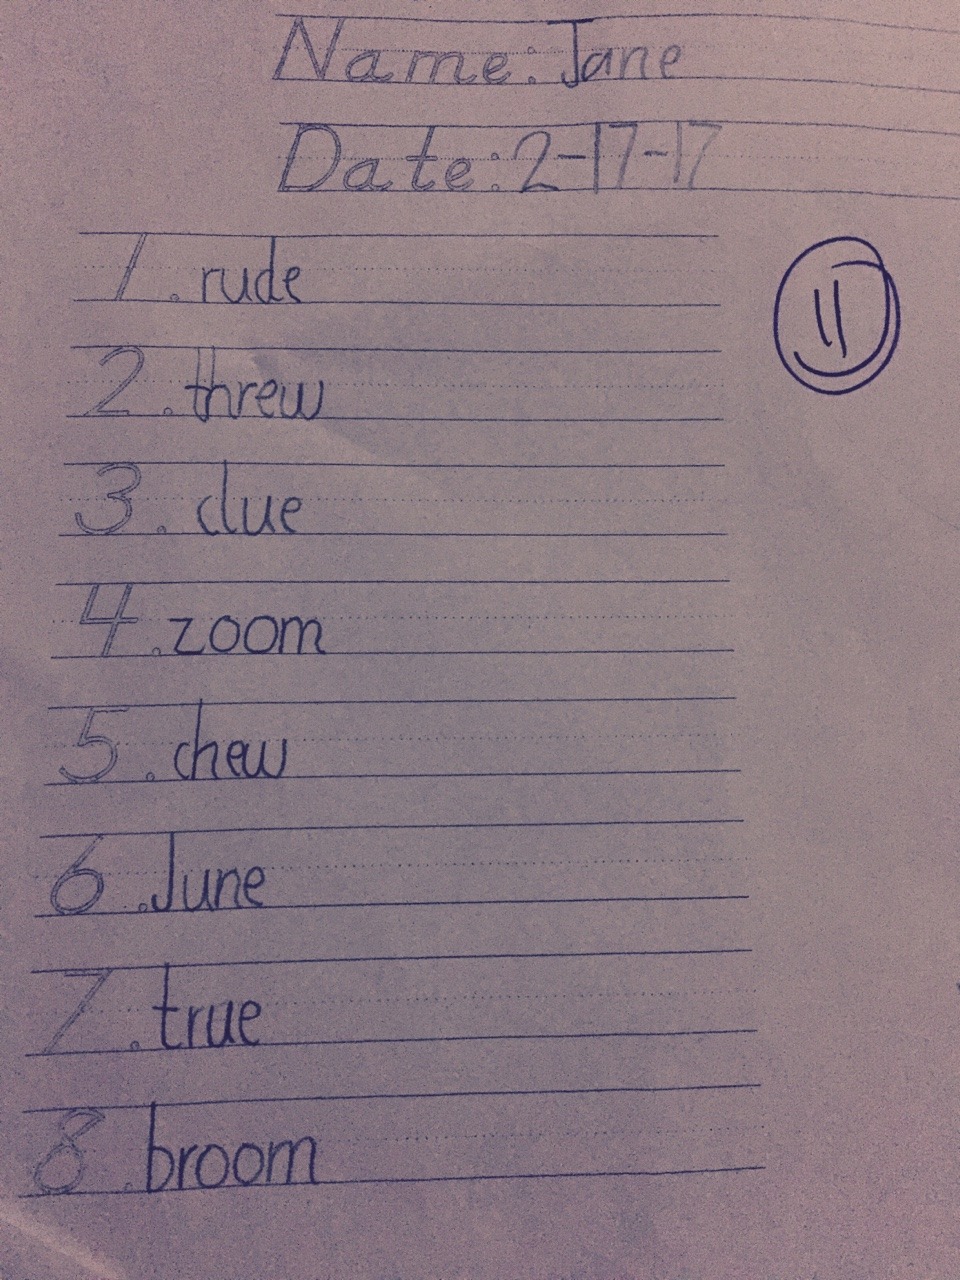 Name: Jane
Date: 2-17-17
1. rude
2. threw
3. clue
4. zoom
5. chew
6. June
7. true
8. broom